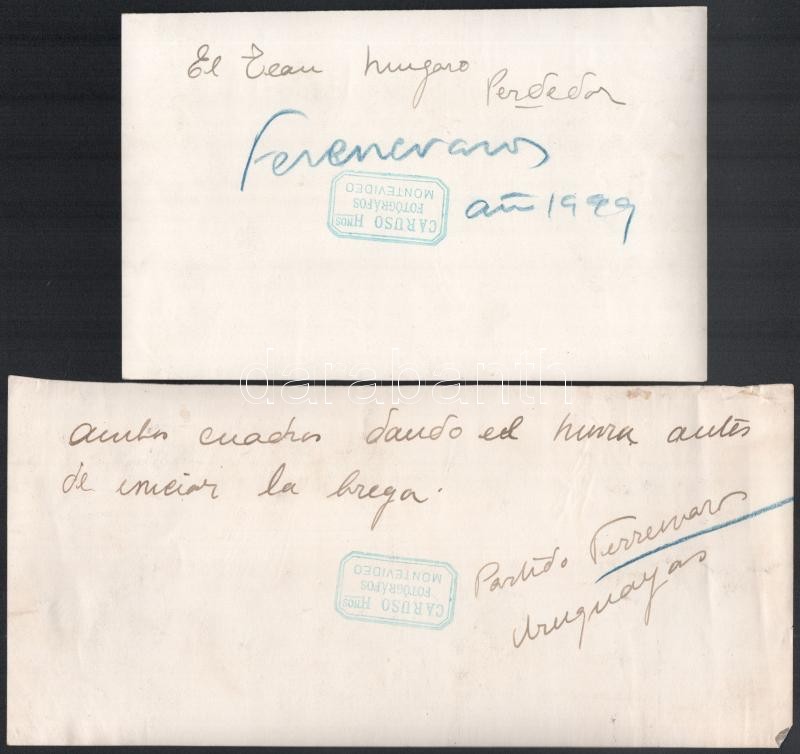 El Team hungaro
Perdedor
Ferencvaros
CARUSO HNOS
FOTÓGRAFOS
MONTEVIDEO
año 1929
darabanth
ambos cuadros dando el hurra antes
de iniciar la brega.
Partido Ferrenvaros
Uruguayos
CARUSO HNOS
FOTÓGRAFOS
MONTEVIDEO